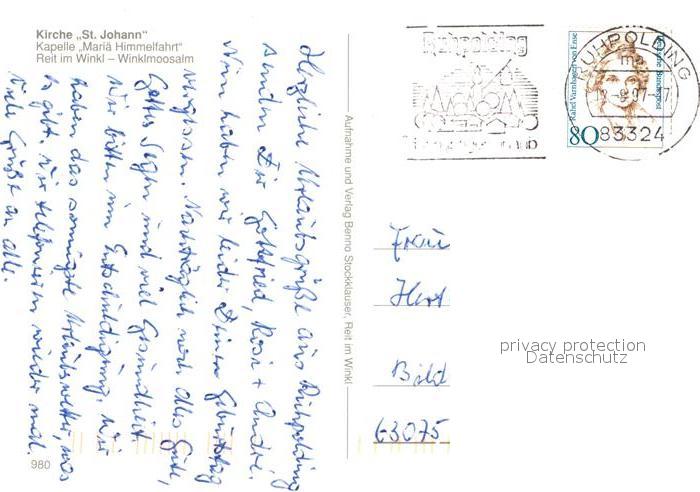 Kirche „St. Johann“
Kapelle „Mariä Himmelfahrt“
Reit im Winkl – Winklmoosalm
Herzliche Urlaubsgrüße aus Ruhpolding
senden Dir Gottfried, Rosi + André.
Nun haben wir leider Deinen Geburtstag
vergessen. Nachträglich noch alles Gute,
Gottes Segen und viel Gesundheit
Wir bitten um Entschuldigung. Wir
haben das sonnigste Urlaubswetter, was
es gibt. Wir telefonieren wieder mal.
Viele Grüße an alle.
980
Aufnahme und Verlag Benno Stockklauser, Reit im Winkl
Ruhpolding
RUHPOLDING
83324
Rahel Varnhagen von Ense
Deutsche Bundespost
80
Frau
63075
privacy protection
Datenschutz